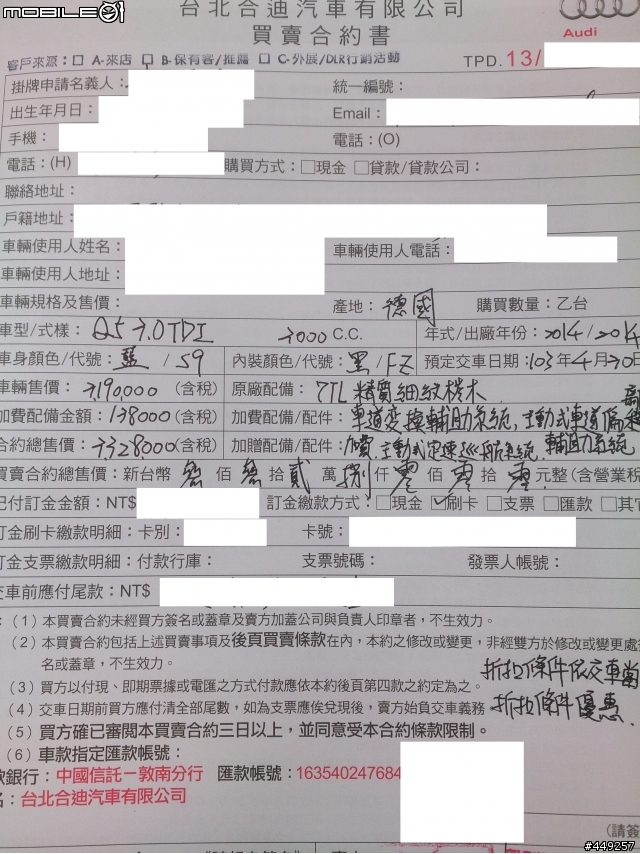 MOBILE01
台北合迪汽車有限公司
買賣合約書
Audi
客戶來源：□ A-來店 □ B-保有客/推薦 □ C-外展/DLR行銷活動
TPD. 13/
掛牌申請名義人： 統一編號：
出生年月日： Email：
手機： 電話：(O)
電話：(H) 購買方式：□現金 □貸款/貸款公司：
聯絡地址：
戶籍地址：
車輛使用人姓名： 車輛使用人電話：
車輛使用人地址：
車輛規格及售價： 產地：德國 購買數量：乙台
車型/式樣：Q5 3.0TDI 3000 C.C. 年式/出廠年份：2014/2014
車身顏色/代號：藍/S9 內裝顏色/代號：黑/FZ 預定交車日期：103年4月30日
車輛售價：3,190,000 (含稅) 原廠配備：7TL 精質細紋梣木
加費配備金額：138000 (含稅) 加費配備/配件：車道變換輔助系統，主動式車道偏移
合約總售價：3,328000 (含稅) 加贈配備/配件：加費，主動式定速巡航系統 輔助系統
買賣合約總售價：新台幣 佰 拾貳 萬捌仟零佰零拾零元整(含營業稅
已付訂金金額：NT$ 訂金繳款方式：□現金 ☑刷卡 □支票 □匯款 □其
訂金刷卡繳款明細：卡別： 卡號：
訂金支票繳款明細：付款行庫： 支票號碼： 發票人帳號：
交車前應付尾款：NT$
：(1) 本買賣合約未經買方簽名或蓋章及賣方加蓋公司與負責人印章者，不生效力。
(2) 本買賣合約包括上述買賣事項及後頁買賣條款在內，本約之修改或變更，非經雙方於修改或變更處
名或蓋章，不生效力。
折扣條件依交車當
(3) 買方以付現、即期票據或電匯之方式付款應依本約後頁第四款之約定為之。
折扣條件優惠.
(4) 交車日期前買方應付清全部尾數，如為支票應俟兌現後，賣方始負交車義務
(5) 買方確已審閱本買賣合約三日以上，並同意受本合約條款限制。
(6) 車款指定匯款帳號：
款銀行：中國信託－敦南分行 匯款帳號：16354024768４
名：台北合迪汽車有限公司
(請簽
#449257